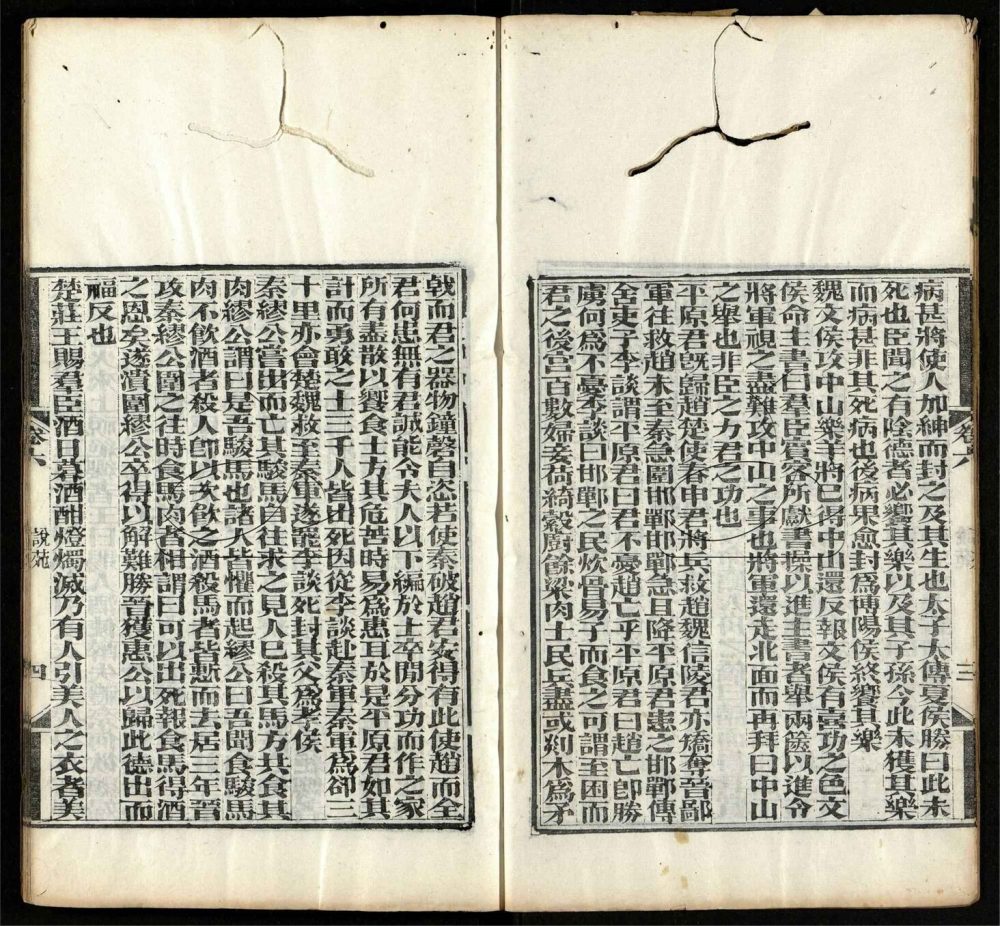 病甚將使人加紳而封之及其生也太子太傅夏侯勝曰此未
死也臣聞之有陰德者必饗其樂以及其子孫今此未獲其樂
而病甚非其死病也後病果愈封爲博陽侯終饗其樂
魏文侯攻中山樂羊將已得中山還反報文侯有喜功之色文
侯命主書曰羣臣賓客所獻書操以進主書者舉兩篋以進令
將軍視之盡難攻中山之事也將軍還走北面而再拜曰中山
之舉也非臣之力君之功也
平原君旣歸趙楚使春申君將兵救趙魏信陵君亦矯奪晉鄙
軍往救趙未至秦急圍邯鄲邯鄲急且降平原君患之邯鄲傳
舍吏子李談謂平原君曰君不憂趙亡乎平原君曰趙亡卽勝
虜何爲不憂李談曰邯鄲之民炊骨易子而食之可謂至困而
君之後宮百數婦妾荷綺縠廚餘梁肉士民兵盡或剡木爲矛
卷六
三
戟而君之器物鐘磬自恣若使秦破趙君安得有此使趙而全
君何患無有君誠能令夫人以下編於士卒閒分功而作之家
所有盡散以饗食士方其危苦時易爲惠耳於是平原君如其
計而勇敢之士三千人皆出死因從李談赴秦軍秦軍爲卻三
十里亦會楚魏救至秦軍遂罷李談死封其父爲孝侯
秦繆公嘗出而亡其駿馬自往求之見人已殺其馬方共食其
肉繆公謂曰是吾駿馬也諸人皆懼而起繆公曰吾聞食駿馬
肉不飲酒者殺人卽以次飲之酒殺馬者皆慙而去居三年晉
攻秦繆公圍之往時食馬肉者相謂曰可以出死報食馬得酒
之恩矣遂潰圍繆公卒得以解難勝晉獲惠公以歸此德出而
福反也
楚莊王賜羣臣酒日暮酒酣燈燭滅乃有人引美人之衣者美
卷六
說苑
四